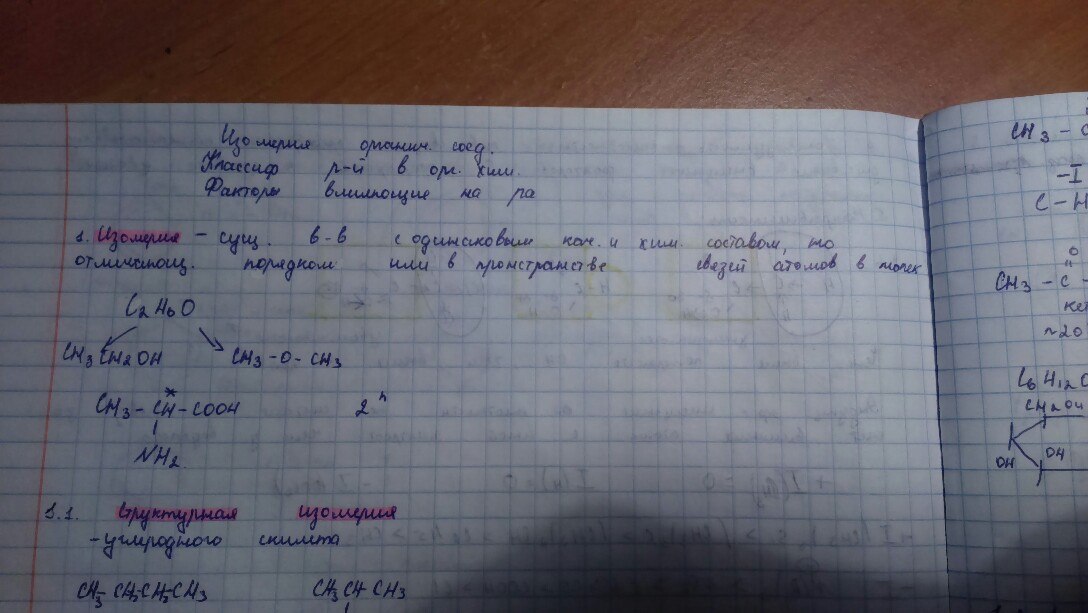 Изомерия органич. соед.
Классиф р-й в орг. хим.
Факторы влияющие на ра
1. Изомерия – сущ. в-в с одинаковым кач. и хим. составом, но
отличающ. порядком или в пронстранстве связей атомов в молек
C2H6O
CH3CH2OH CH3-O-CH3
CH3-C*H-COOH 2^n
NH2
1.1. Структурная изомерия
-углеродного скилета
CH3-CH2-CH2-CH3 CH3CH-CH3
CH3 -
-I
C-H
O
CH3-C-
кет
~20
C6H12O
CH2OH
OH OH